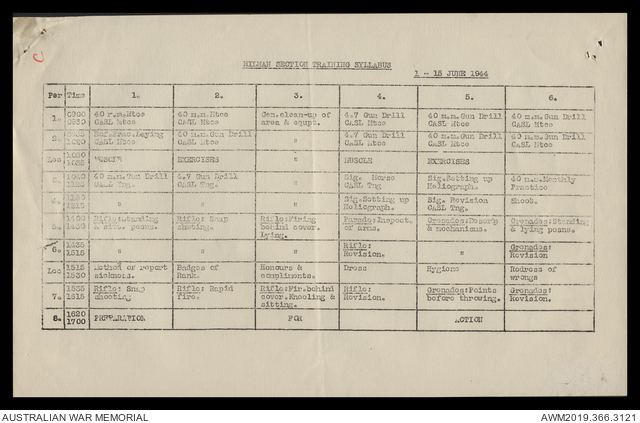 C
MILHAN SECTION TRAINING SYLLABUS
1 - 15 JUNE 1944
Per Time 1. 2. 3. 4. 5. 6.
1. 0900 0930 40 m.m.Mtce CASL Mtce 40 m.m.Mtce CASL Mtce Gen.clean-up of area & equpt. 4.7 Gun Drill CASL Mtce 40 m.m.Gun Drill CASL Mtce 40 m.m.Gun Drill CASL Mtce
2. Laying CASL Mtce 40 m.m.Gun Drill CASL Mtce " 4.7 Gun Drill CASL Mtce 40 m.m.Gun Drill CASL Mtce 40 m.m.Gun Drill CASL Mtce
Lec MUSCLE EXERCISES " MUSCLE EXERCISES
3. 40 m.m.Gun Drill CASL Tng. 4.7 Gun Drill CASL Tng. " Sig. Morse CASL Tng Sig.Setting up Heliograph. 40 m.m.Monthly Practice
4. " " " Sig.Setting up Heliograph. Sig. Revision CASL Tng. Shoot.
5. Rifle:Standing & sit. posns. Rifle: Snap shoting. Rifle:Firing behind cover. Lying. Parade:Inspect. of arms. Grenades:Descrip & mechanism. Grenades:Standing & lying posns.
6. 1435 1515 " " " Rifle: Revision. " Grenades: Revision
Lec 1515 1530 Method of report sickness. Badges of Rank. Honours & compliments. Dress Hygiene Redress of wrongs
7. 1535 1615 Rifle: Snap shooting Rifle: Rapid fire. Rifle:Fir.behind cover.Kneeling & sitting. Rifle: Revision. Grenades:Points before throwing. Grenades: Revision.
8. 1620 1700 PREPARATION FOR ACTION
AUSTRALIAN WAR MEMORIAL
AWM2019.366.3121